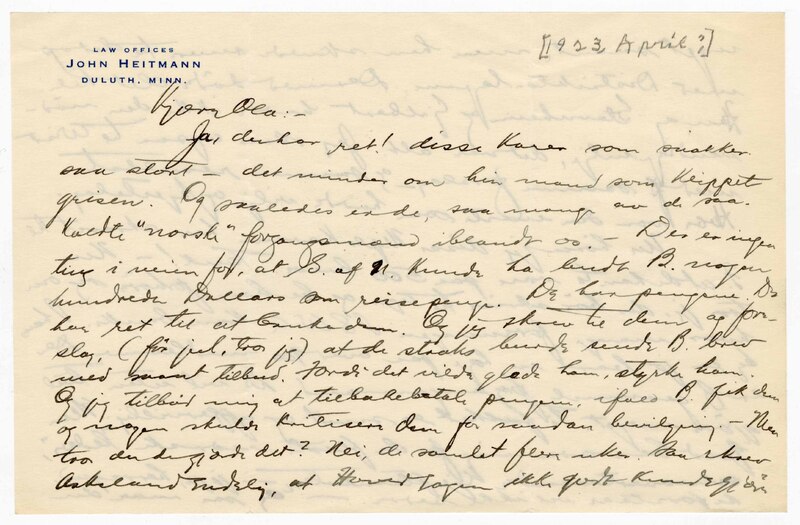 [1923, April ?]
LAW OFFICES
JOHN HEITMANN
DULUTH, MINN.
Kjære Ola:-
Ja, du har ret! disse Karer som snakker
saa stort - det minder om hin mand som klippet
grisen. Og saaledes er de saa mange av de saa-
kaldte "norske" forgangsmænd iblandt os. - Der er ingen
ting i veien for, at S. af N. kunde ha sendt B. nogen
hundrede Dollars som reisepenge. De har pengene. De
har ret til at bruke dem. Og jeg skrev til dem og fore-
slog, (før jul, tror jeg) at de straks burde sende B. brev
med saant tilbud. Fordi det vilde glæde ham, styrke ham.
Og jeg tilbød mig at tilbakebetale pengene, ifald B. fik dem
og nogen skulde kritisere dem for saadan bevilgning. - Men
tror du de gjorde det? Nei, de samlet flere uker. Saa skrev
Askeland endelig, at Hovedlogen ikke godt kunde gjøre